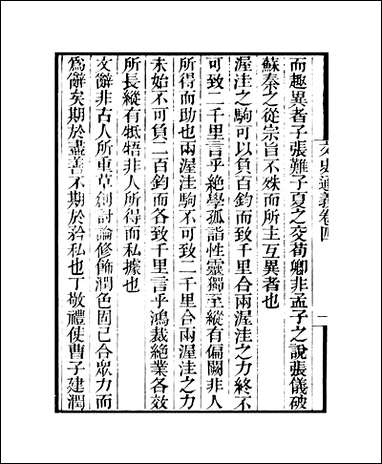 而趣異者子張難子夏之交荀卿非孟子之說張儀破
蘇秦之從宗旨不殊而所主互異者也
渥洼之駒可以負百鈞而致千里合兩渥洼之力終不
可致二千里言乎絕學孤詣性靈獨至縱有偏闕非人
所得而助也兩渥洼駒不可致二千里合兩渥洼之力
未始不可負二百鈞而各致千里言乎鴻裁絕業各效
所長縱有牴牾非人所得而私據也
文辭非古人所重草創討論修飾潤色固已合眾力而
爲辭矣期於盡善不期於矜私也丁敬禮使曹子建潤
文史通義卷四
一